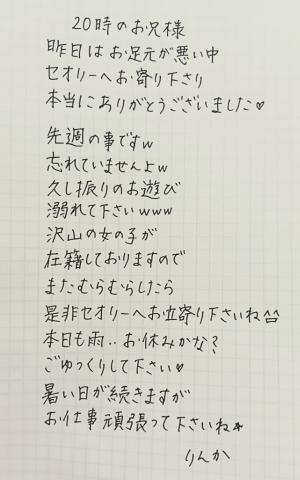 20時のお兄様
昨日はお足元が悪い中
セオリーへお寄り下さり
本当にありがとうございました♡
先週の事ですw
忘れていませんよw
久し振りのお遊び
溺れて下さいwww
沢山の女の子が
在籍しておりますので
またむらむらしたら
是非セオリーへお立寄り下さいね^^
本日も雨..お休みかな?
ごゆっくりして下さい♡
暑い日が続きますが
お仕事頑張って下さいね★
りんか